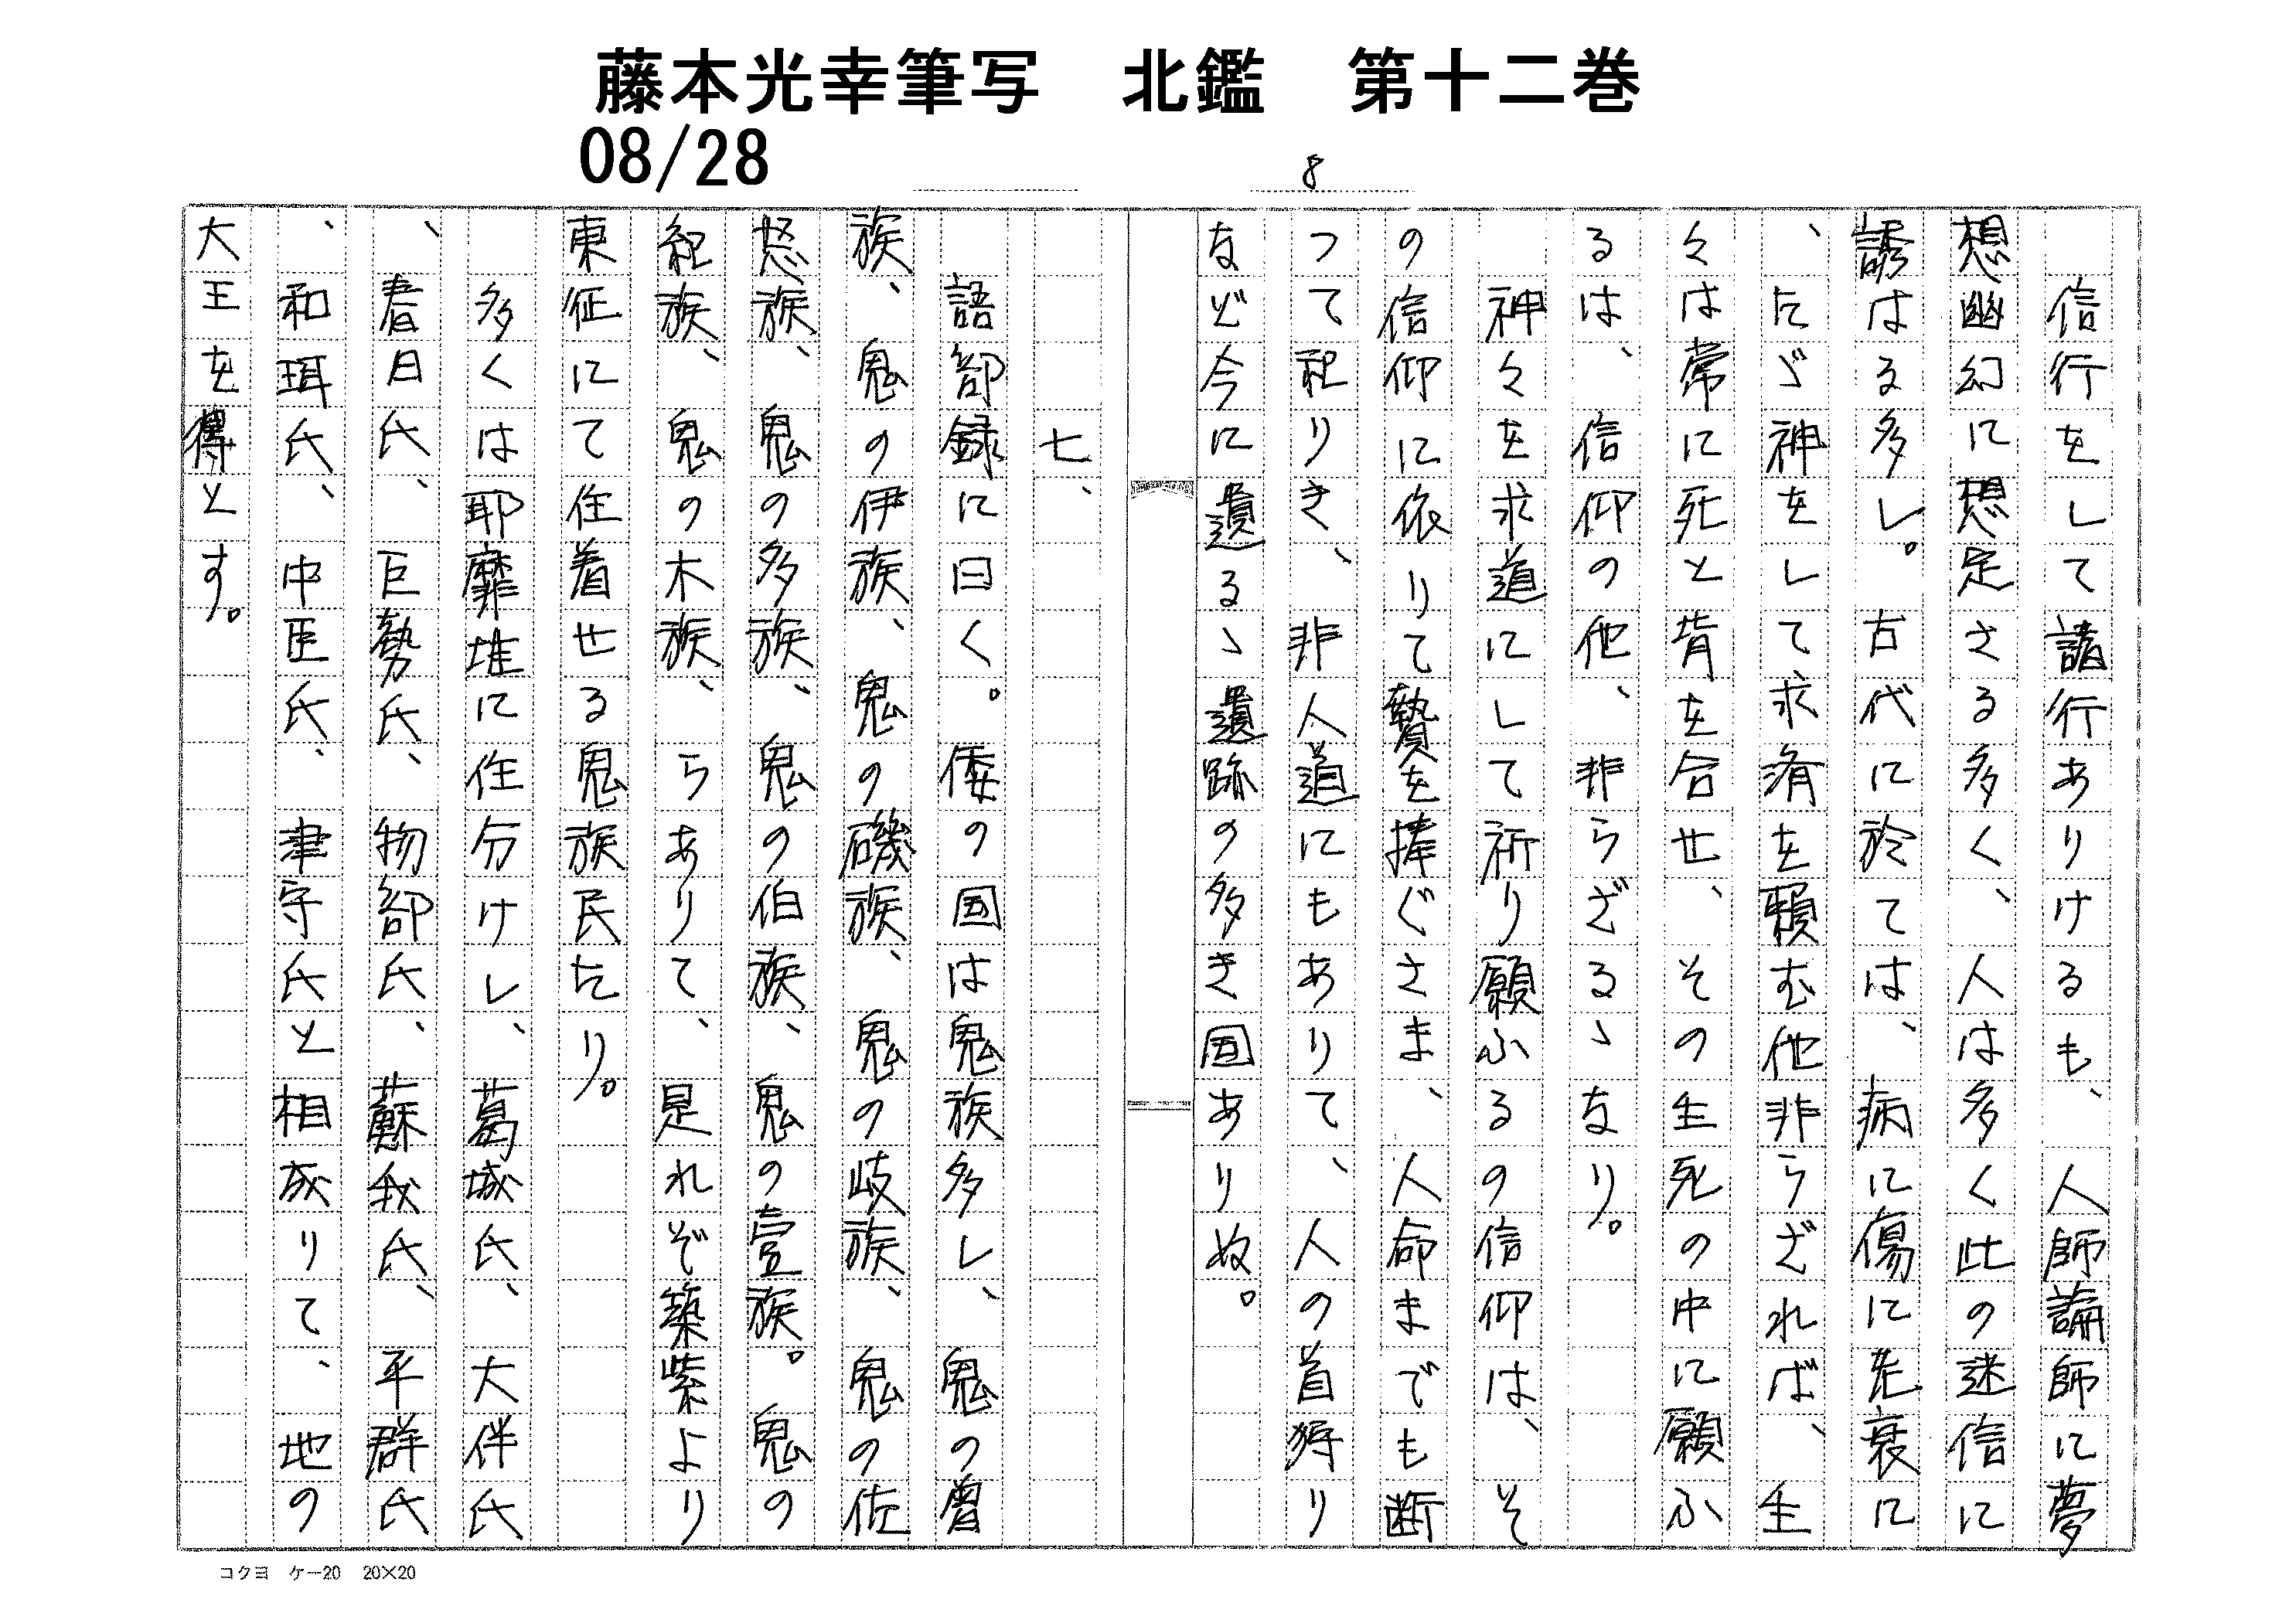 藤本光幸筆写　北鑑　第十二巻
08/28
8
信行をして諸行ありけるも、人師論師に夢
想幽幻に想定さる多く、人は多く此の迷信に
誘はる多し。古代に於ては、病に傷に老衰に
、たゞ神をして求済を頼む他非らざれば、生
々は常に死と背を合せ、その生死の中に願ふ
るは、信仰の他、非らざるゝなり。
神々を求道にして祈り願ふるの信仰は、そ
の信仰に依りて贄を捧ぐさま、人命までも断
つて祀りき、非人道にもありて、人の首狩り
など今に遺るゝ遺跡の多き国ありぬ。
七、
語部録に曰く。倭の国は鬼族多し、鬼の曽
族、鬼の伊族、鬼の磯族、鬼の岐族、鬼の佐
怒族、鬼の多族、鬼の伯族、鬼の壹族。鬼の
紀族、鬼の木族、らありて、是れぞ築紫より
東征にて住着せる鬼族民たり。
多くは耶靡堆に住分けし、葛城氏、大伴氏
、春日氏、巨勢氏、物部氏、蘇我氏、平群氏
、和珥氏、中臣氏、津守氏と相成りて、地の
大王を得とす。
コクヨ　ケー20　20×20